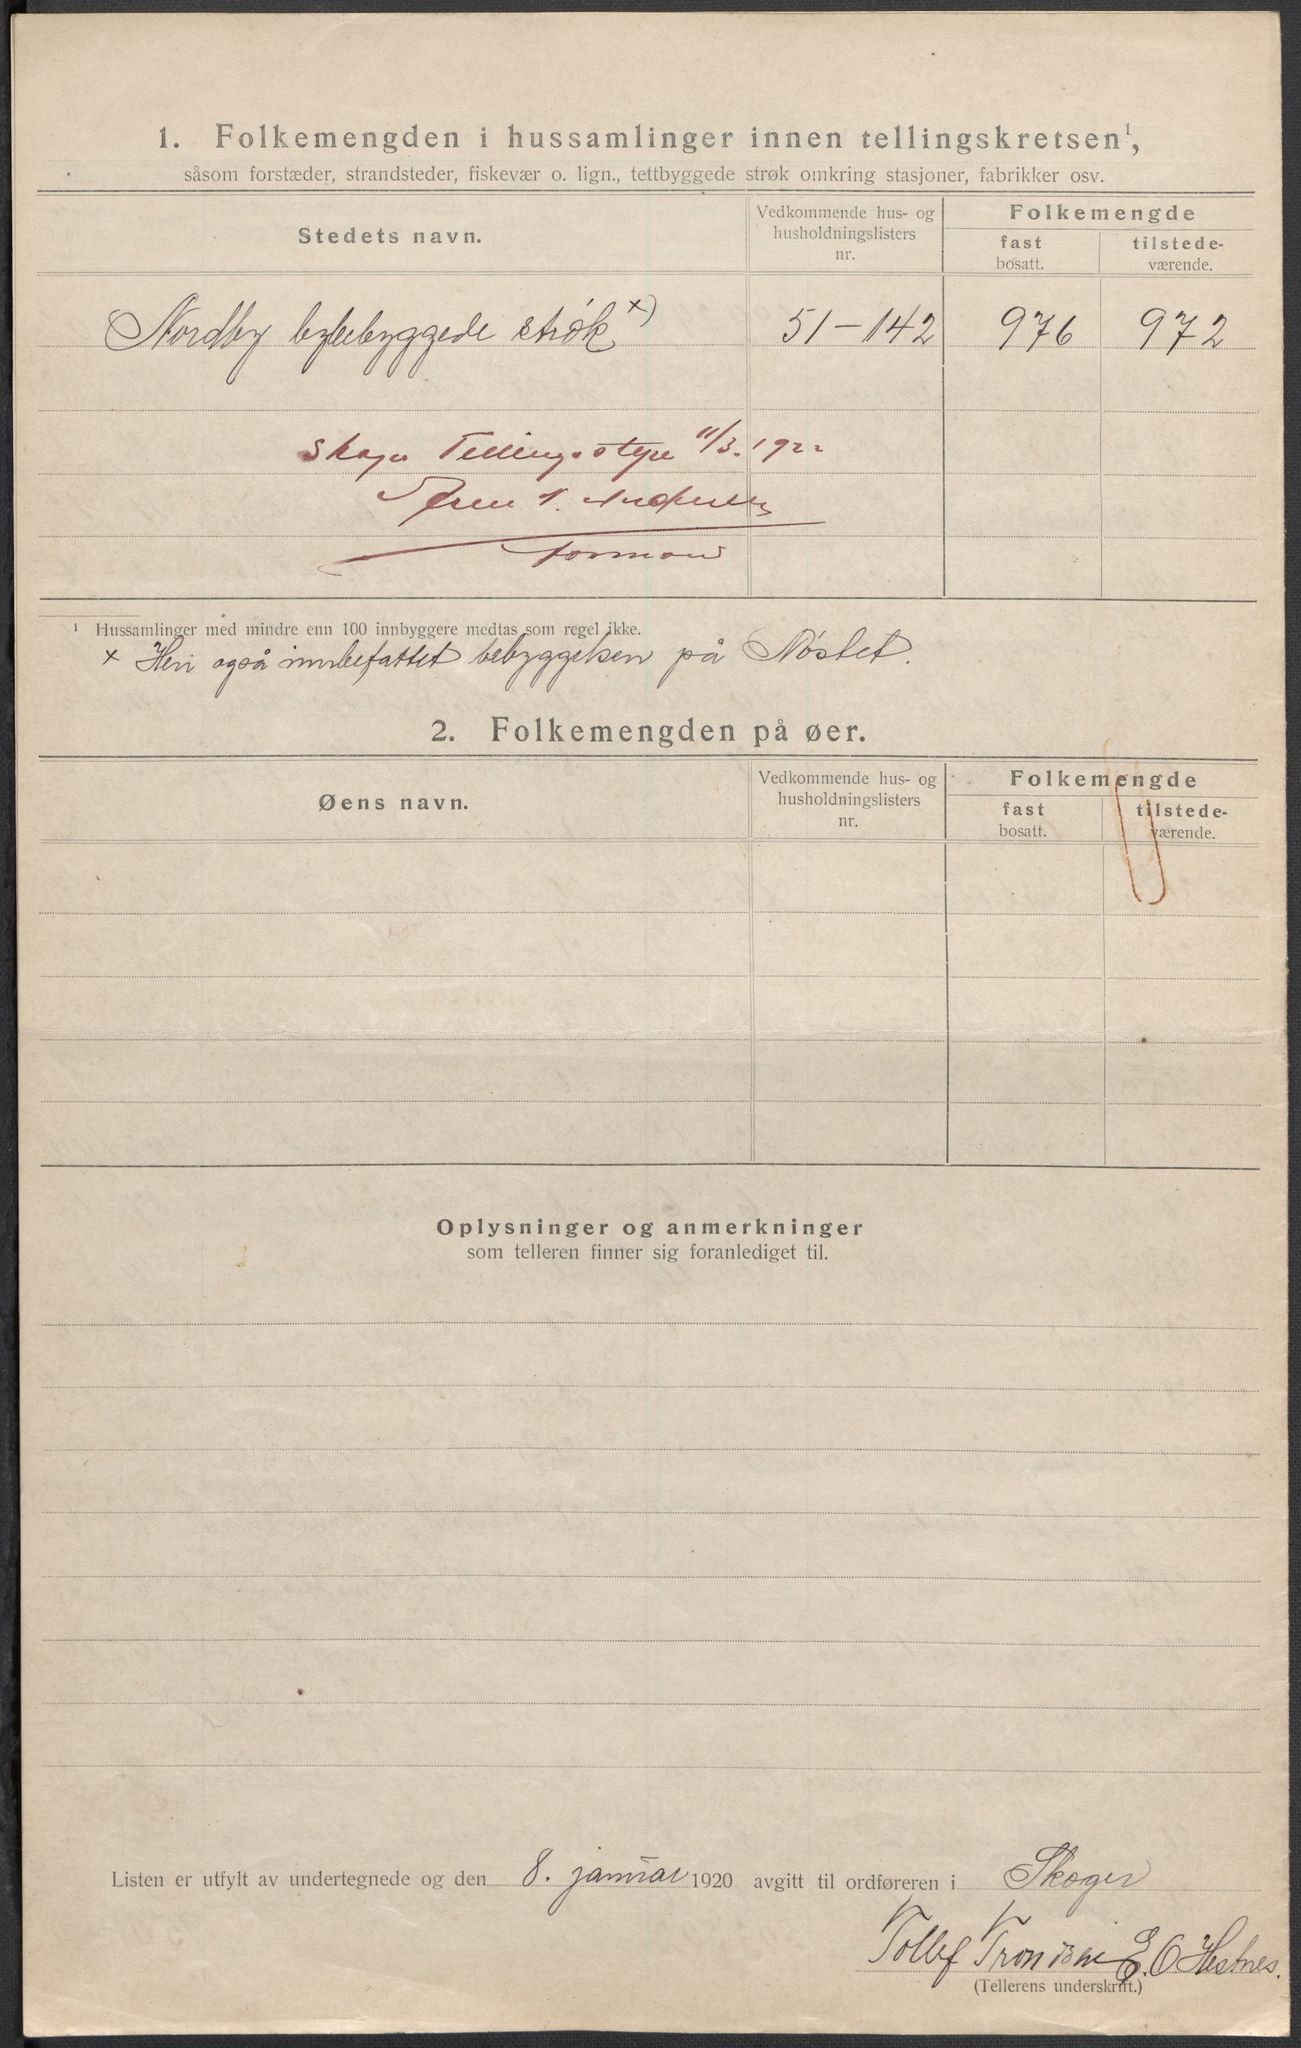 1. Folkemengden i hussamlinger innen tellingskretsen¹,
såsom forstæder, strandsteder, fiskevær o. lign., tettbyggede strøk omkring stasjoner, fabrikker osv.
Stedets navn.
Vedkommende hus- og
husholdningslisters
nr.
Folkemengde
fast
bosatt.
tilstede-
værende.
Nordby bybebyggede strøk x)
51-142
976
972
Skoger Tellingsstyre 11/3. 1922
formann
¹ Hussamlinger med mindre enn 100 innbyggere medtas som regel ikke.
x Heri også innbefattet bebyggelsen på Nøstet.
2. Folkemengden på øer.
Øens navn.
Vedkommende hus- og
husholdningslisters
nr.
Folkemengde
fast
bosatt.
tilstede-
værende.
Oplysninger og anmerkninger
som telleren finner sig foranlediget til.
Listen er utfylt av undertegnede og den 8. januar 1920 avgitt til ordføreren i Skoger
Tollef Tronsen E. O. Hestnes.
(Tellerens underskrift.)